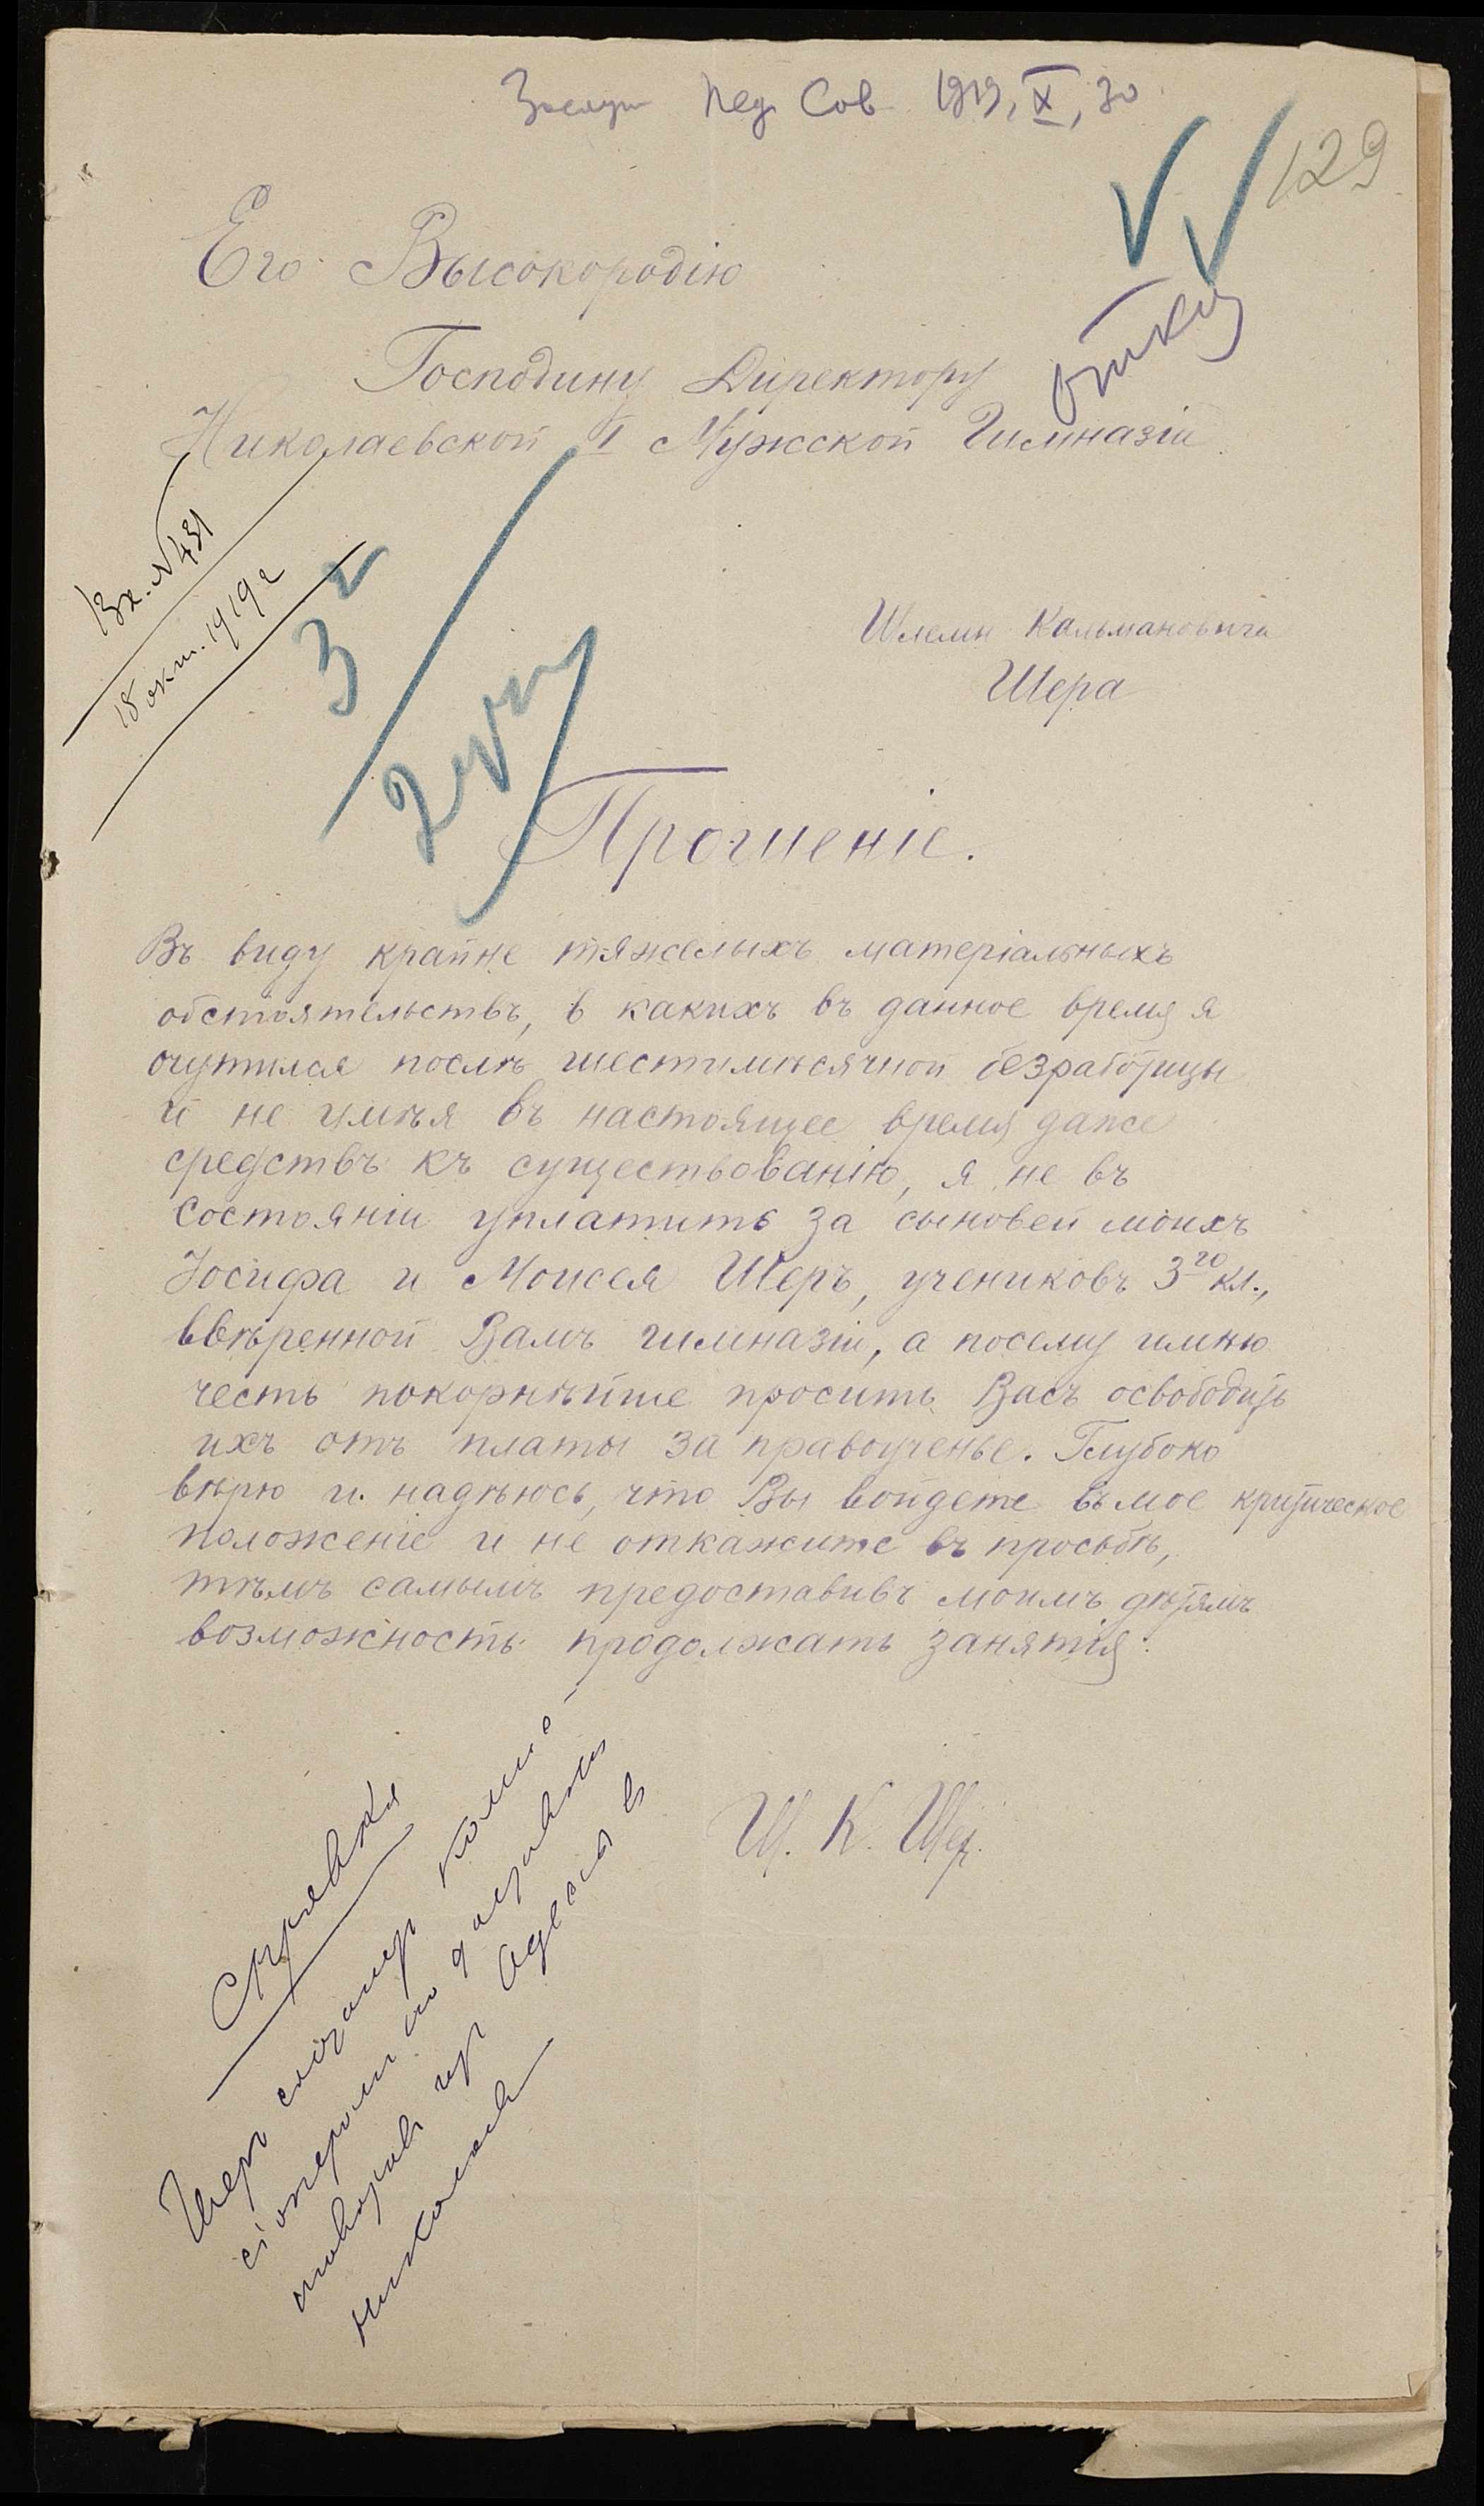 Пед Сов 1919, X, 30
129
Его Высокородію
Господину Директору
Николаевской I Мужской Гимназіи
отказ
Вх. № 431
18 окт. 1919 г
3
Шлемы Кальмановича
Шера
Прошеніе.
Въ виду крайне тяжелыхъ матеріальныхъ
обстоятельствъ, в какихъ въ данное время я
очутился послѣ шестимѣсячной безработицы
и не имѣя въ настоящее время даже
средствъ къ существованію, я не въ
состояніи уплатить за сыновей моихъ
Іосифа и Моисея Шеръ, учениковъ 3го кл.,
ввѣренной Вамъ гимназіи, а посему имѣю
честь покорнѣйше просить Васъ освободить
ихъ отъ платы за правоученье. Глубоко
вѣрю и надѣюсь, что Вы войдете въ мое критическое
положеніе и не откажите въ просьбѣ,
тѣмъ самымъ предоставивъ моимъ дѣтямъ
возможность продолжать занятія.
Ш. К. Шер.
Справка
Шер
товаров из Одессы в
Николаев